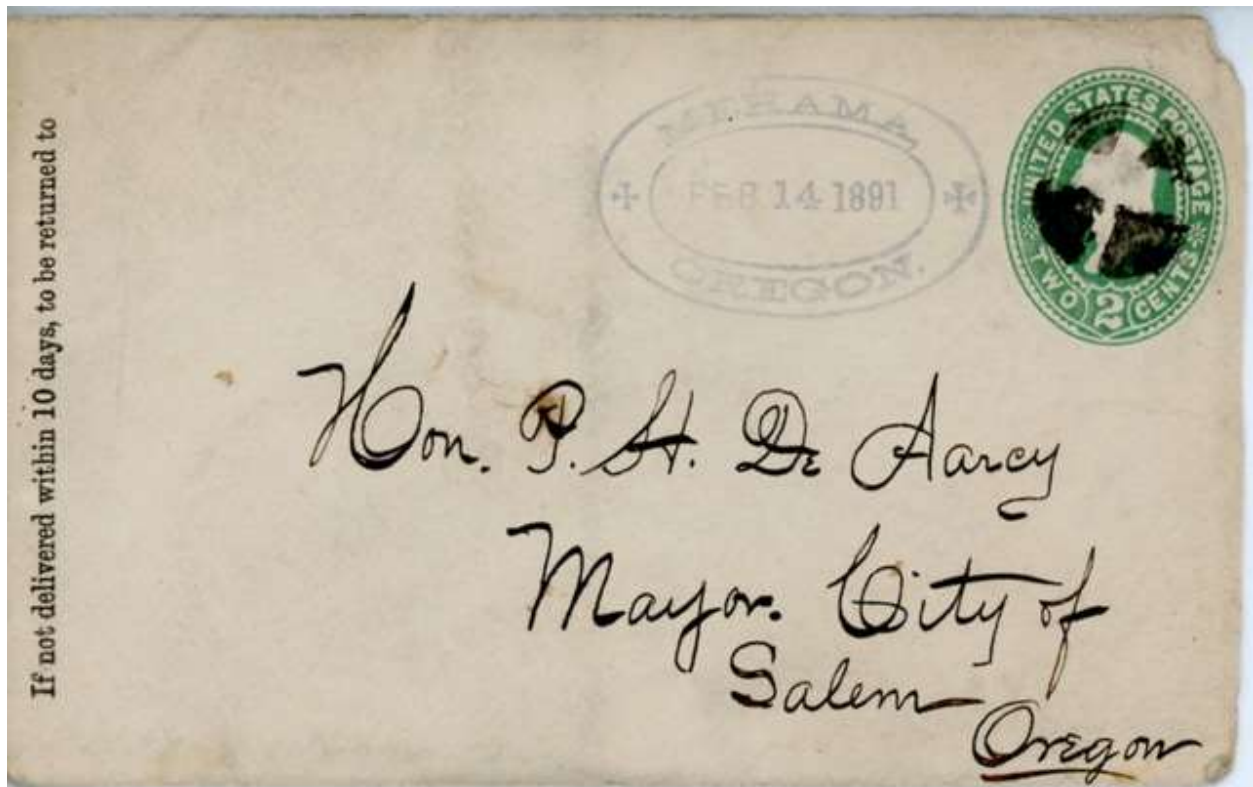 If not delivered within 10 days, to be returned to
MEHAMA,
FEB 14 1891
OREGON.
UNITED STATES POSTAGE
TWO 2 CENTS
Hon. P. H. De Aarcy
Mayor. City of
Salem
Oregon